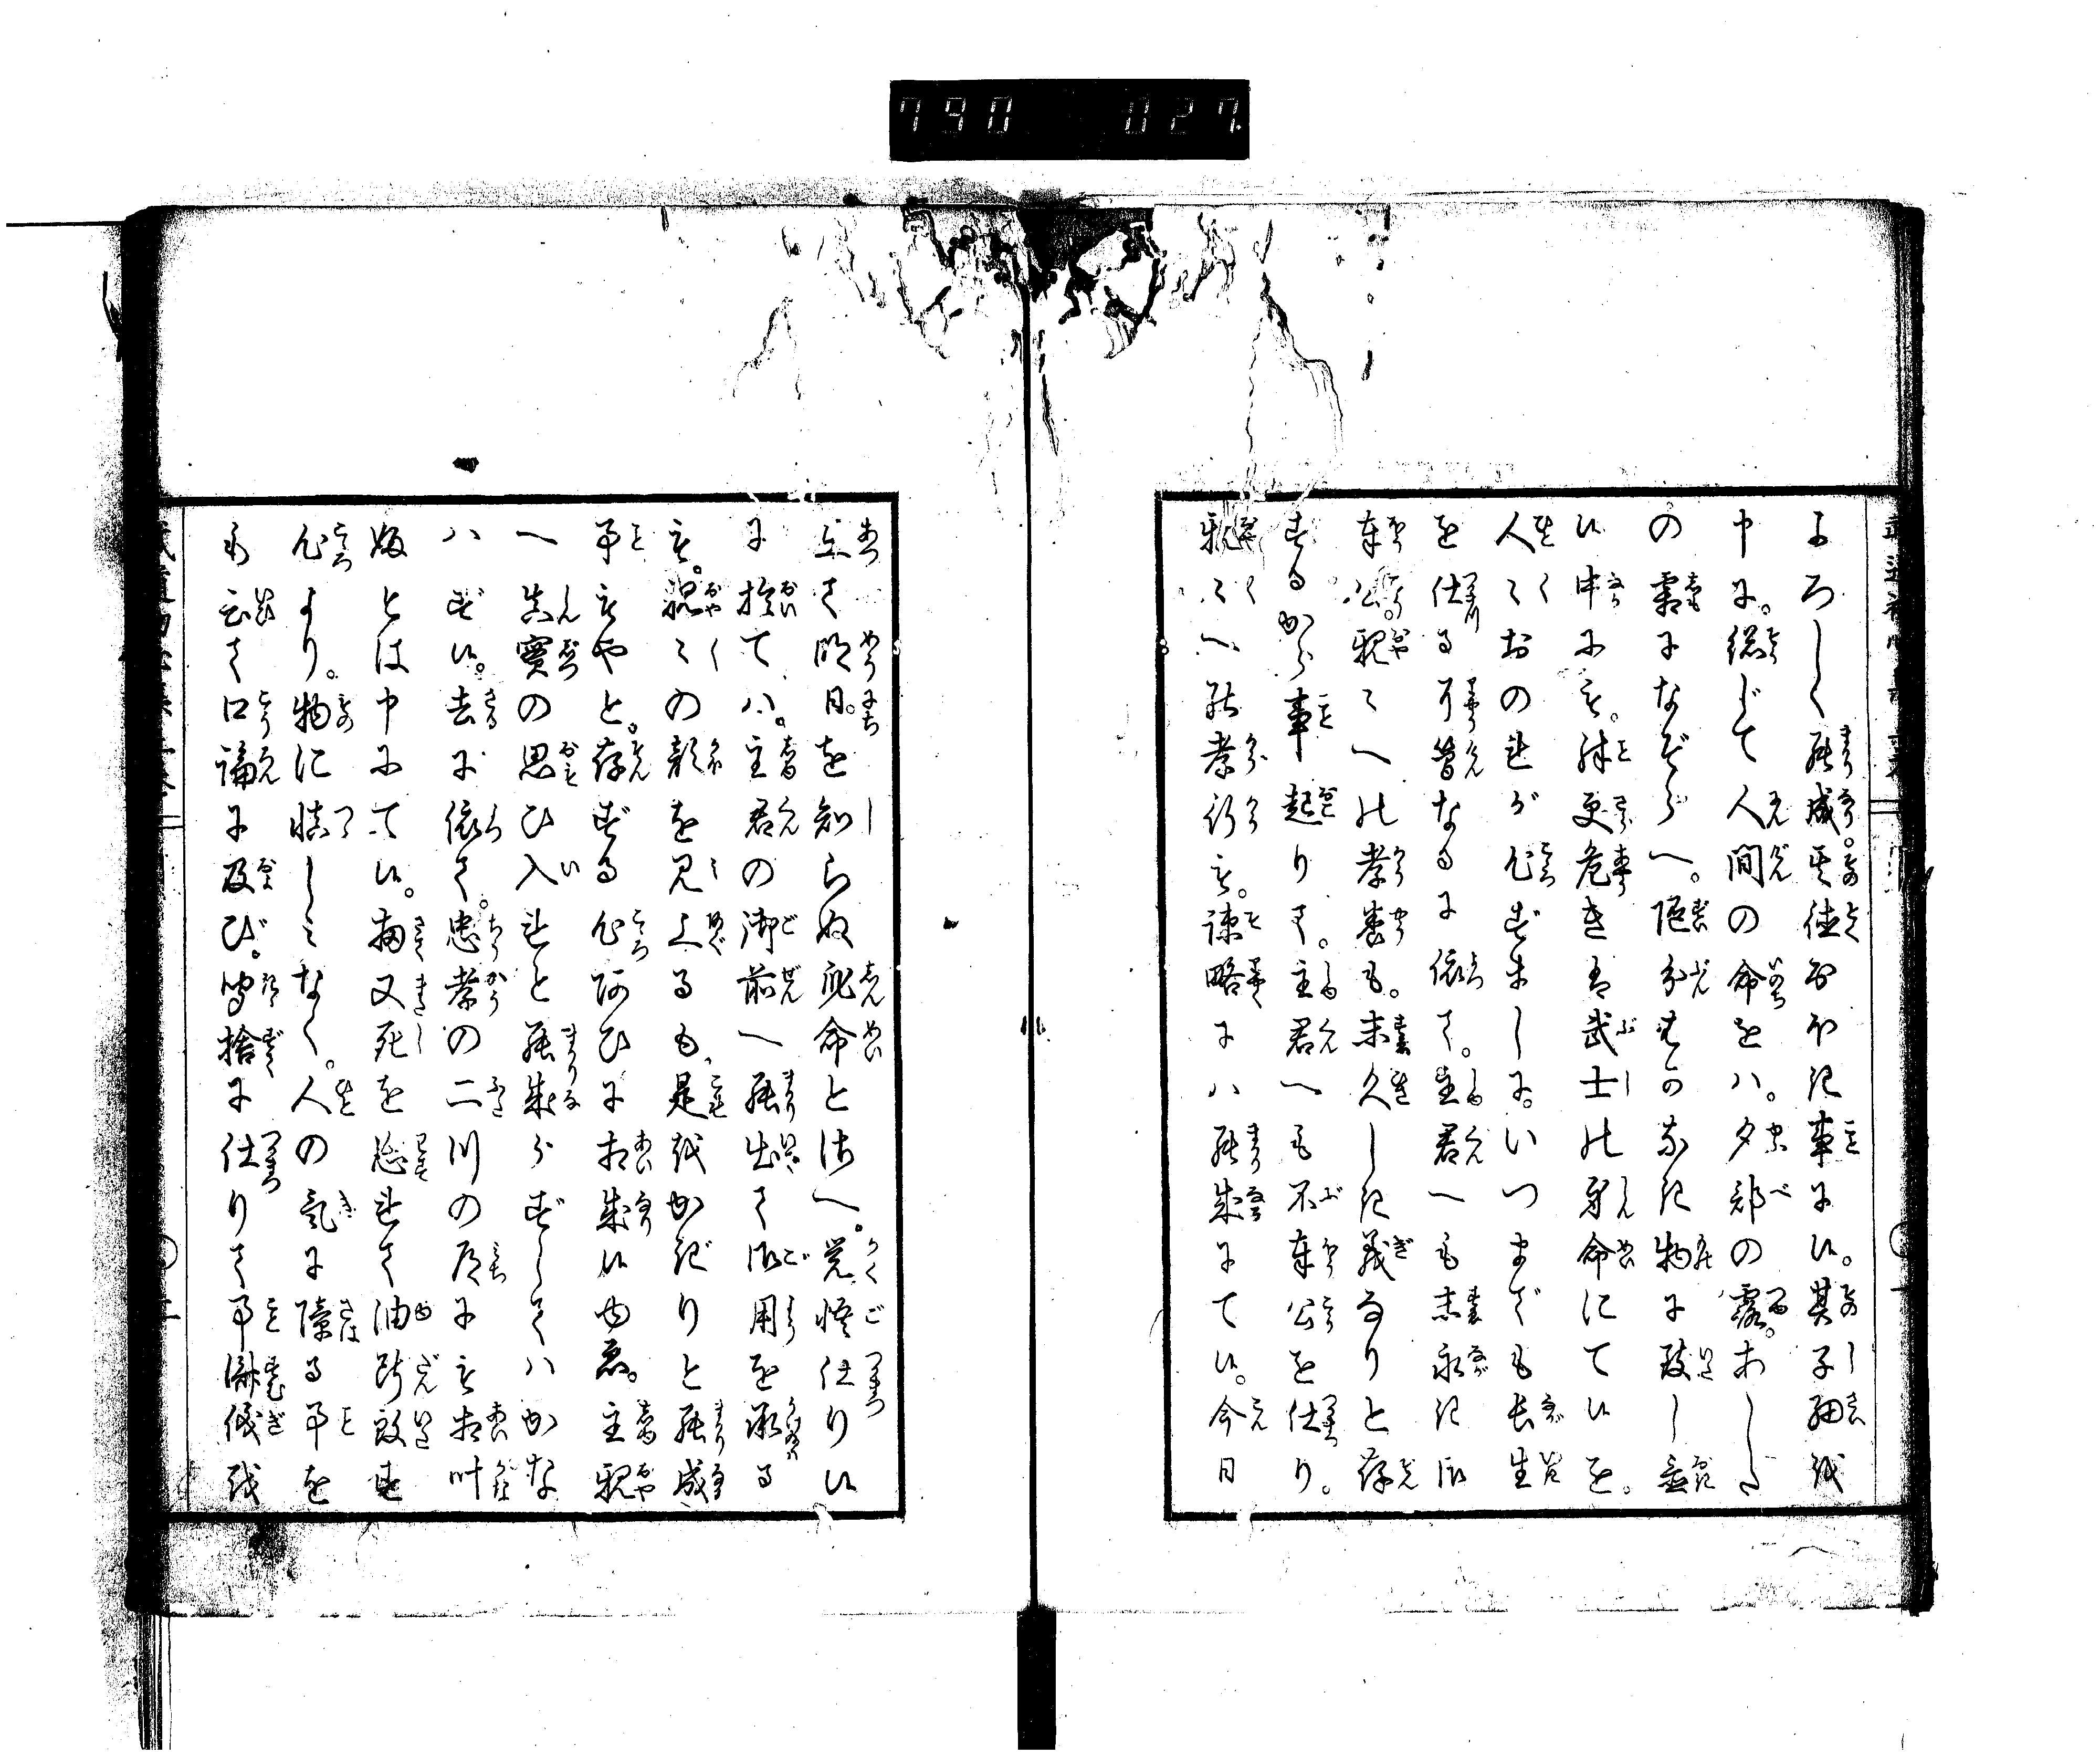 790 027
よろしく罷成。其徳おほき事に候。其子細を
申に。総じて人間の命をハ。夕部の露。あした
の霜になぞらへ。随分はかなき物に致し置
候中にも。殊更危きは武士の身命にて候を。
人々おのれが心ずましに。いつまでも長生
を仕る了簡なるに依て。主君へも末永き御
奉公。親々への孝養も。末久しき義なりと存
ずるから事起りて。主君へも不奉公を仕り。
親々へ不孝行も。疎略にハ罷成にて候。今日
有て明日を知らぬ身命とさへ。覚悟仕り候
に於てハ。主君の御前へ罷出て御用を承る
も。親々の顔を見上るも。是をかぎりと罷成
事もやと。存ずる心あひに相成候ゆゑ。主親
へ真実の思ひ入れと罷成らずしてハかな
ハず候。去に依て。忠孝の二つの道にも相叶
ふとは申にて候。扨又死を忘れて油断致す
心より。物に慎しみなく。人の気に障る事を
も云て口論に及び。聞捨に仕りて事済儀を